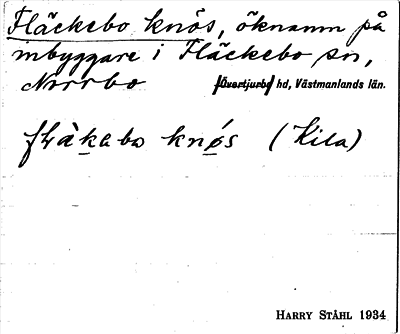 Fläckebo knös, öknamn på
inbyggare i Fläckebo sn,
Norrbo [Övertjurbo] hd, Västmanlands län.
flàkabo knǿs (Kila)
HARRY STÅHL 1934